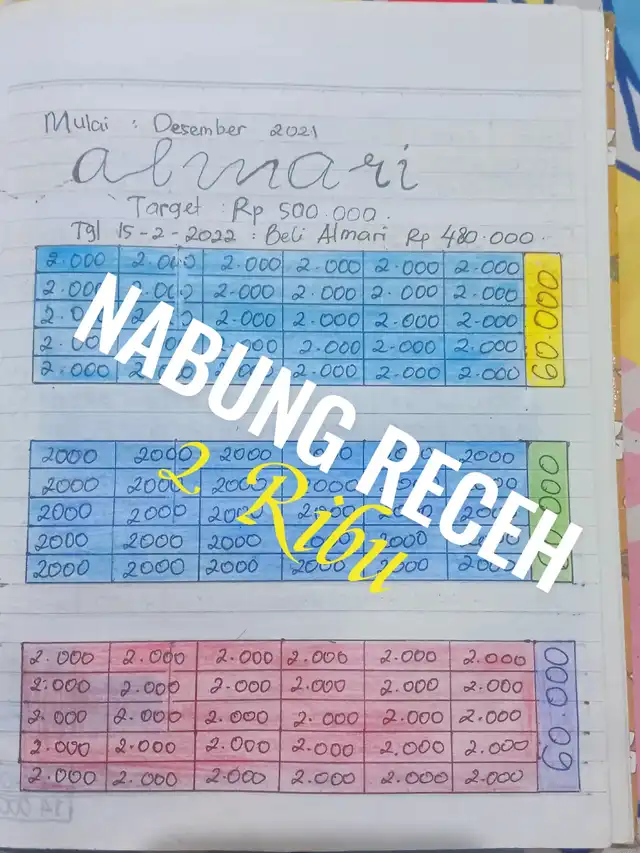 Mulai : Desember 2021
almari
Target : Rp 500.000.
Tgl 15-2-2022 : Beli Almari Rp 480.000.
2.000 2.000 2.000 2.000 2.000 2.000
2.000 2.000 2.000 2.000 2.000 2.000
2.000 2.000 2.000 2.000 2.000
2.000 2.000 2.000 2.000
2.000 2.000 2.000 2.000
60.000
NABUNG RECEH
2 Ribu
2000 2000 2000 2000
2000 2000 2000
2000 2000
2000 2000 2000 2000
2000 2000 2000 2000
2.000 2.000 2.000 2.000 2.000 2.000
2.000 2.000 2.000 2.000 2.000 2.000
2.000 2.000 2.000 2.000 2.000 2.000
2.000 2.000 2.000 2.000 2.000 2.000
2.000 2.000 2.000 2.000 2.000 2.000
60.000